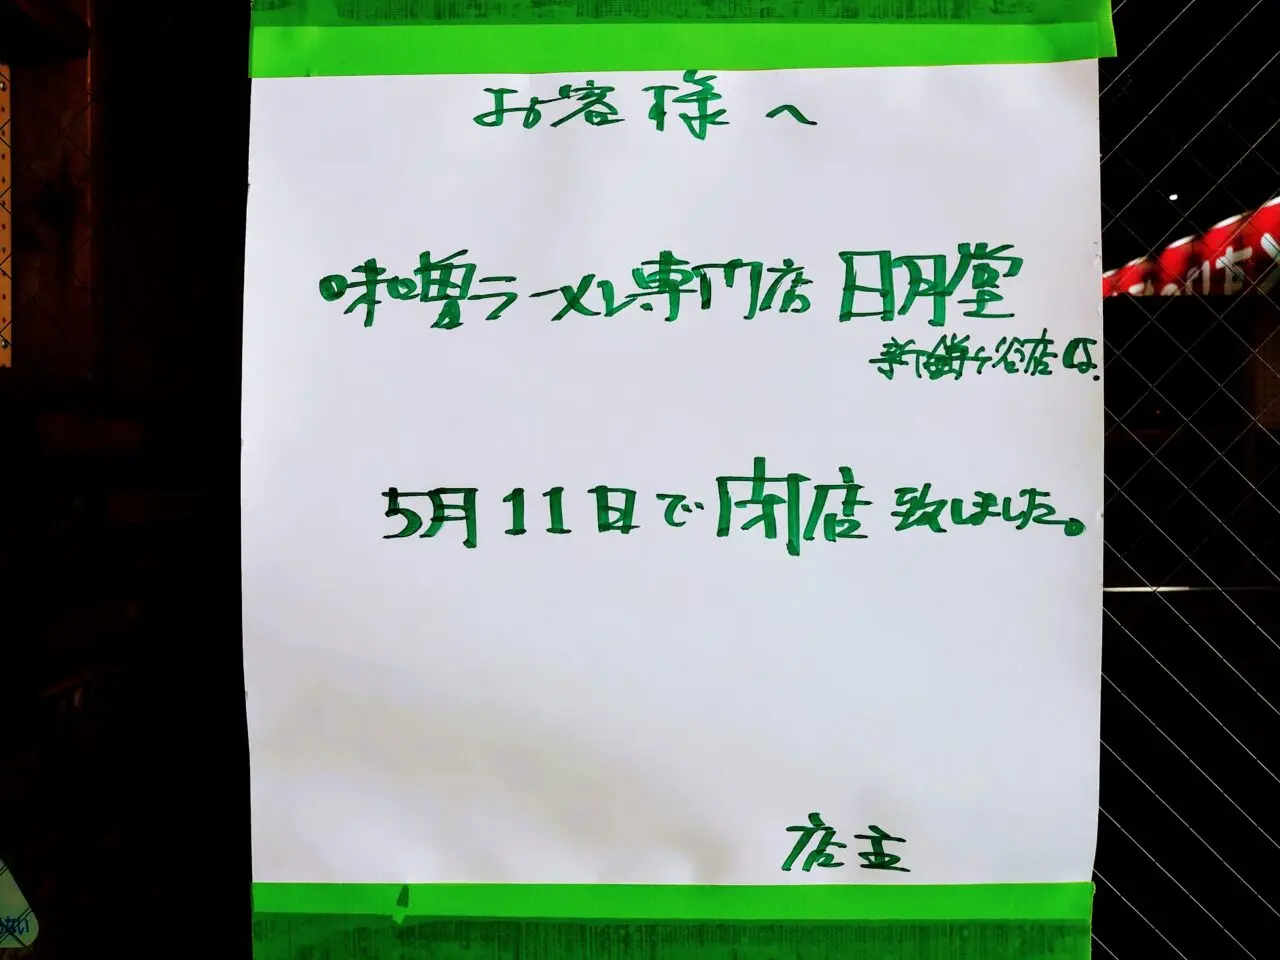 お客様へ
味噌ラーメン専門店 日月堂
新鎌ヶ谷店は、
5月11日で閉店致しました。
店主